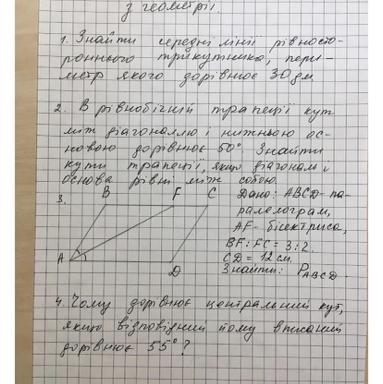 з геометрії.
1. Знайти середні лінії рівносто-
роннього трикутника, пери-
метр якого дорівнює 30 дм
2. В рівнобічній трапеції кут
між діагоналлю і нижньою ос-
новою дорівнює 50°. Знайти
кути трапеції, якщо діагональ і
основа рівні між собою.
3.
B F C
A D
Дано: ABCD - па-
ралелограм,
AF - бісектриса,
BF : FC = 3 : 2.
CD = 12 см.
Знайти: P ABCD.
4. Чому дорівнює центральний кут,
якщо відповідний йому вписаний
дорівнює 55°?